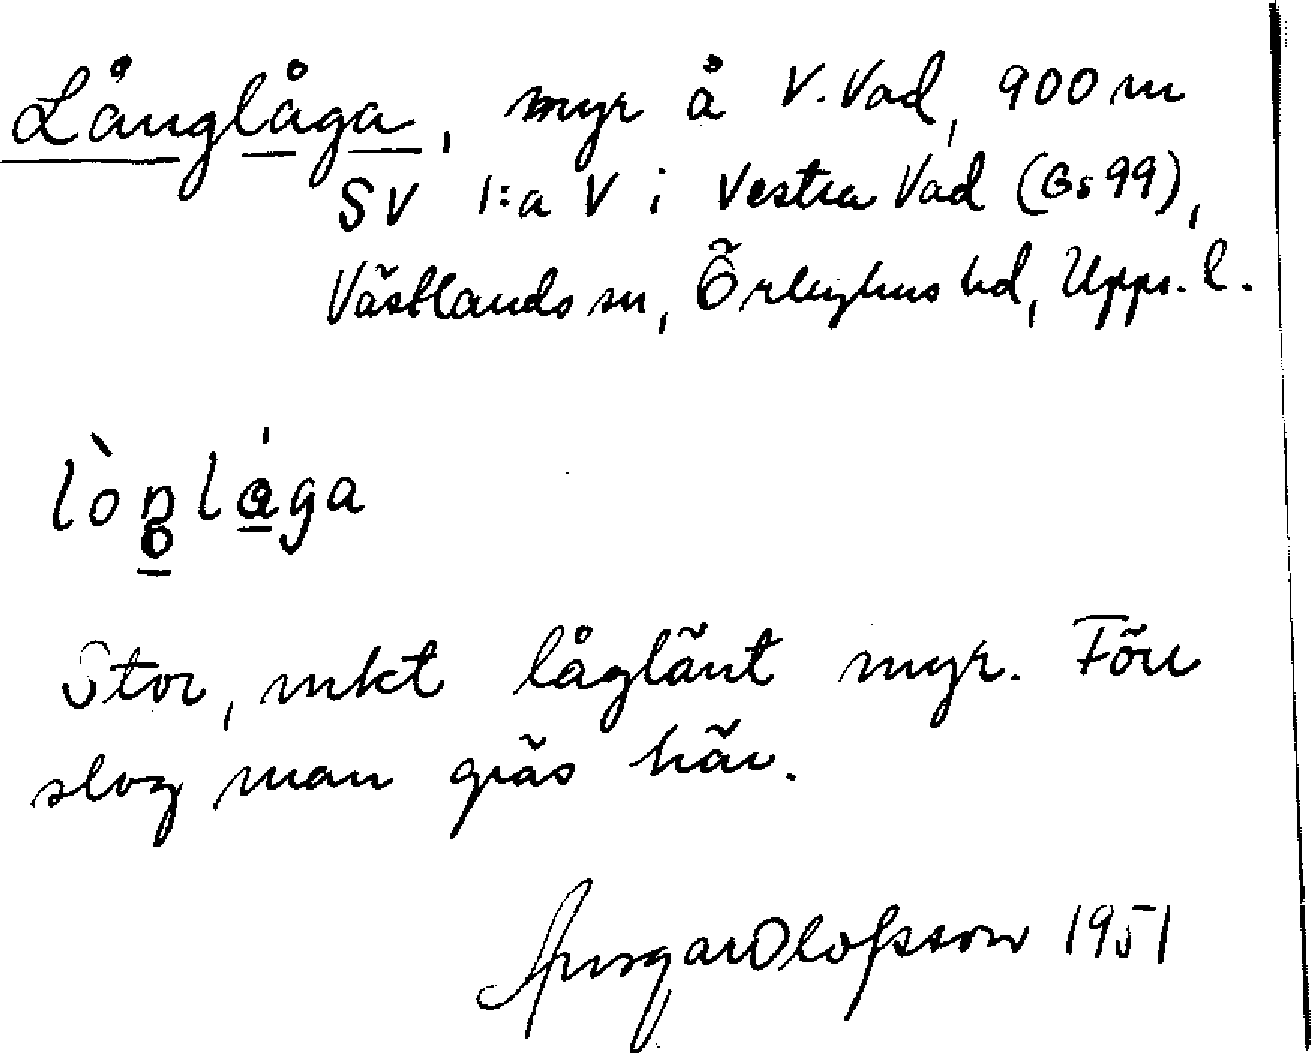 Långlåga, myr å V. Vad, 900 m
SV 1:a V i Vestra Vad (Gs 99),
Västlands sn, Örbyhus hd, Upps. l.
Stor, mkt låglänt myr. Förr
slog man gräs här.
Ansgar Olofsson 1951